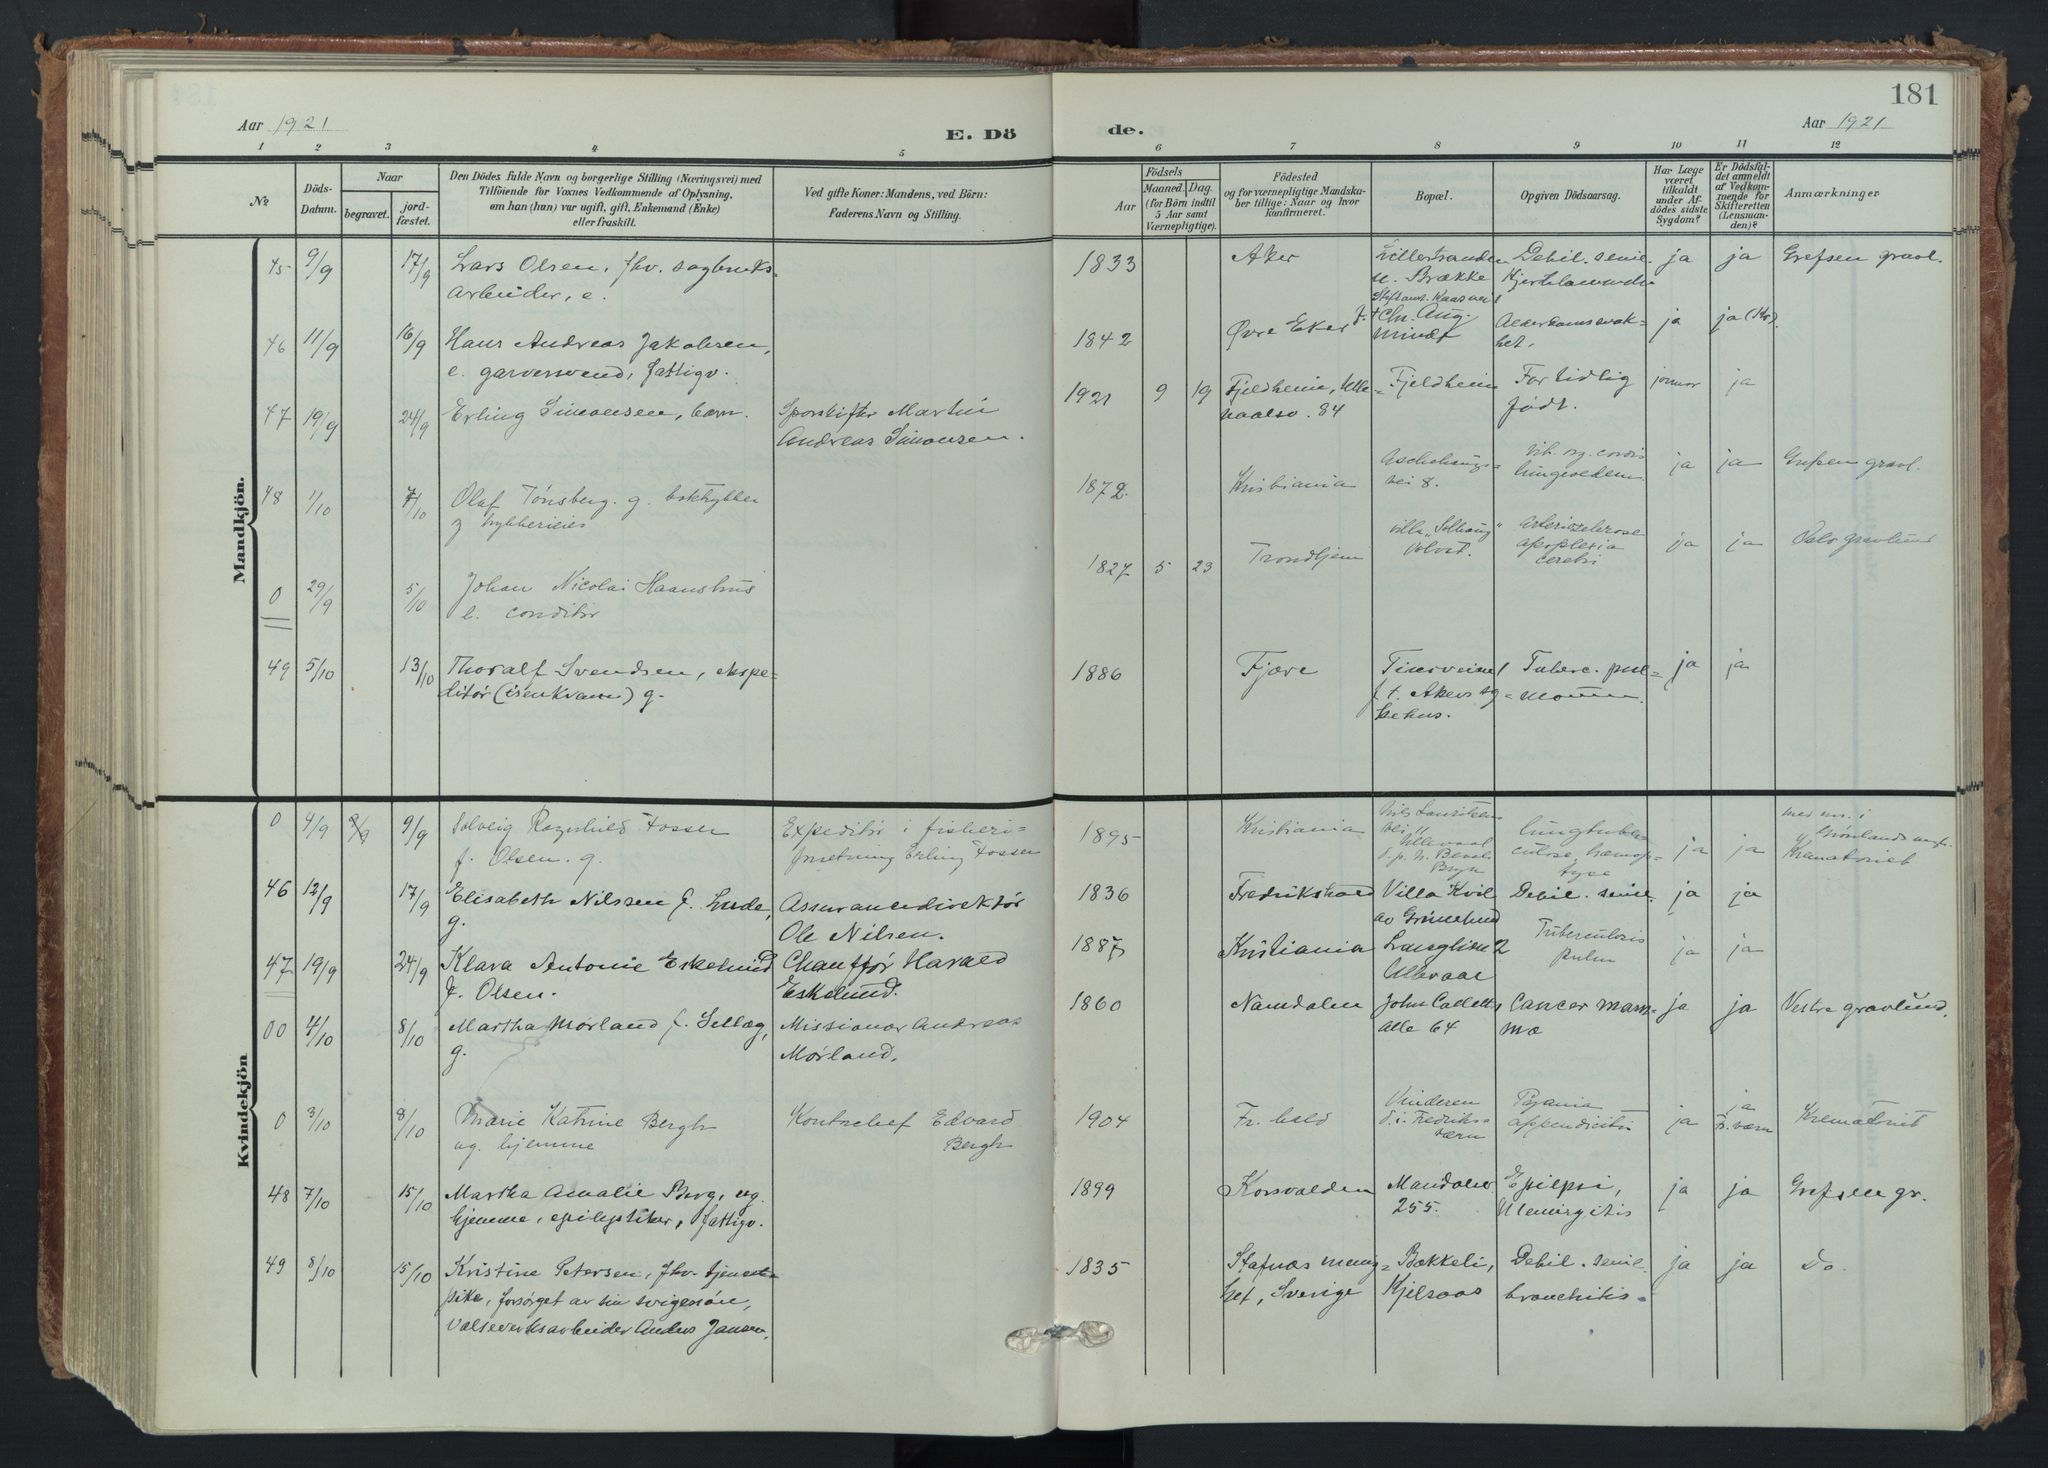 181
Aar 1921
E. Dö
de.
Aar 1921
1 2 3 4 5 6 7 8 9 10 11 12
No.
Døds-
Datum.
Naar
begravet.
jord-
fæstet.
Den Dödes fulde Navn og borgerlige Stilling (Næringsvei) med
Tilföiende for Voxnes Vedkommende af Oplysning,
om han (hun) var ugift, gift, Enkemand (Enke)
eller fraskilt.
Ved gifte Koner: Mandens, ved Börn:
Faderens Navn og Stilling.
Födsels
Aar
Maaned. Dag.
(for Börn indtil
5 Aar samt
Værnepligtige).
Födested
og for værnepligtige Mandsku-
ber tillige: Naar og hvor
konfirmeret.
Bopæl.
Opgiven Dödsaarsag.
Har Læge
været
tilkaldt
under Af-
dödes sidste
Sygdom?
Er Dödsfal-
det anmeldt
af Vedkom-
mende for
Skifteretten
(Lensman-
den)?
Anmærkninger
Mandkjön.
45 9/9 17/9 Lars Olsen, fhv. sagbruks-
arbeider, e.
1833 Aker
Lillestranden
n. Brække
Debil. senil.
ja ja Grefsen gravl.
46 11/9 16/9 Hans Andreas Jakobsen,
e. garversvend, fattigv.
1842 Øvre Eker
Chr. Aug.
minde
Alderdomssvak-
het.
ja ja (Kr).
47 19/9 24/9 Erling Simonsen, barn.
Sporskifter Martin
Andreas Simonsen.
1921 9 19 Fjeldheim, Ulle-
vaalsv. 84
Fjeldheim
For tidlig
født.
jormor ja
48 1/10 7/10 Olaf Tønsberg. g. boktrykker
1872 Kristiania
Aschehougs-
vei 8.
Vit. og. cordis
lungeødem
ja ja Grefsen gravl.
0 29/9 5/10 Johan Nicolai Haanshus
e. conditor
1827 5 23 Trondhjem
villa "Solhaug"
Volvat.
Arteriosclerose
apoplexia
cerebri
ja ja Oslo gravlund
49 5/10 13/10 Thoralf Svendsen, ekspe-
ditør (isenkram) g.
1886 Fjære
f. t. Akers sy-
kehus.
Tuberc. pul-
monum.
ja ja
Kvindekjön
0 4/9 9/9 Solveig Ragnhild Fosser
f. Olsen. g.
Expeditør i fiskeri-
forretning Erling Fosser
1895 Kristiania
Nils Lauritsens
vei,
Ullevaal
d. p. h.
lungtuber-
culose, hæmop-
tyse
ja ja
Grønlands
Krematoriet
46 12/9 17/9 Elisabeth Nilssen f. Lude,
g.
Assurancedirektør
Ole Nilsen.
1836 Fredrikshald
Villa Kvil
av Grimelund
Debil. senil.
ja ja
47 19/9 24/9 Klara Antonie Eskelund
f. Olsen.
Chauffør Harald
Eskelund.
1887 Kristiania
Langlien 2
Ullevaal
Tuberculosis
pulm
ja ja
00 4/10 8/10 Martha Mørland f. Sellæg,
g.
Missionær Andreas
Mørland.
1860 Namdalen
John Colletts
alle 64
Cancer mam-
mæ
ja ja Vestre gravlund.
0 3/10 8/10 Marie Katrine Bergh
ug. hjemme
Kontrchef Edvard
Bergh
1904 Fr. hald
Vinderen
d. i. Fredriks-
værn
Pyæmia
appendicitis
ja ja
Fr. værn
Krematoriet
48 7/10 15/10 Martha Amalie Berg, ug.
hjemme, epileptiker, fattigv.
1899 Korsvolden
Maridalsv.
255.
Epilepsi,
Meningitis
ja ja Grefsen gr.
49 8/10 15/10 Kristine Petersen, fhv. tjeneste-
pike, forsørget av sin svigersøn,
Valseverksarbeider Anders Jansen.
1835 Stafnæs menig-
het, Sverige
Bakkeli,
Kjelsaas
Debil. senil-
bronchitis-
ja ja Do.